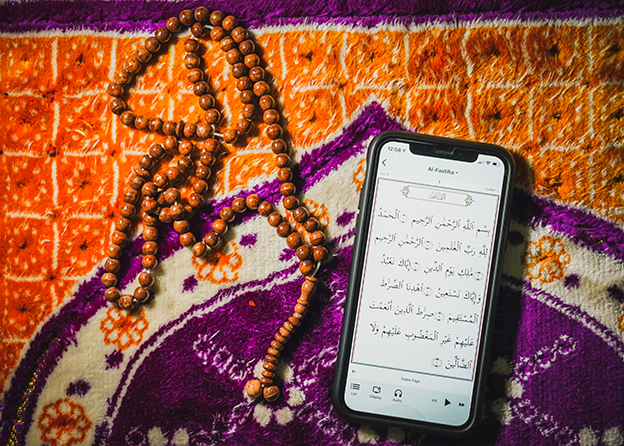 12:58
Al-Faatiha
1
الفاتحة
بِسْمِ اللَّهِ الرَّحْمَٰنِ الرَّحِيمِ ۝ الْحَمْدُ
لِلَّهِ رَبِّ الْعَالَمِينَ ۝ الرَّحْمَٰنِ الرَّحِيمِ
۝ مَٰلِكِ يَوْمِ الدِّينِ ۝ إِيَّاكَ نَعْبُدُ
وَإِيَّاكَ نَسْتَعِينُ ۝ اهْدِنَا الصِّرَٰطَ
الْمُسْتَقِيمَ ۝ صِرَٰطَ الَّذِينَ أَنْعَمْتَ
عَلَيْهِمْ غَيْرِ الْمَغْضُوبِ عَلَيْهِمْ وَلَا
الضَّالِّينَ ۝
Swipe Page
List Display Audio